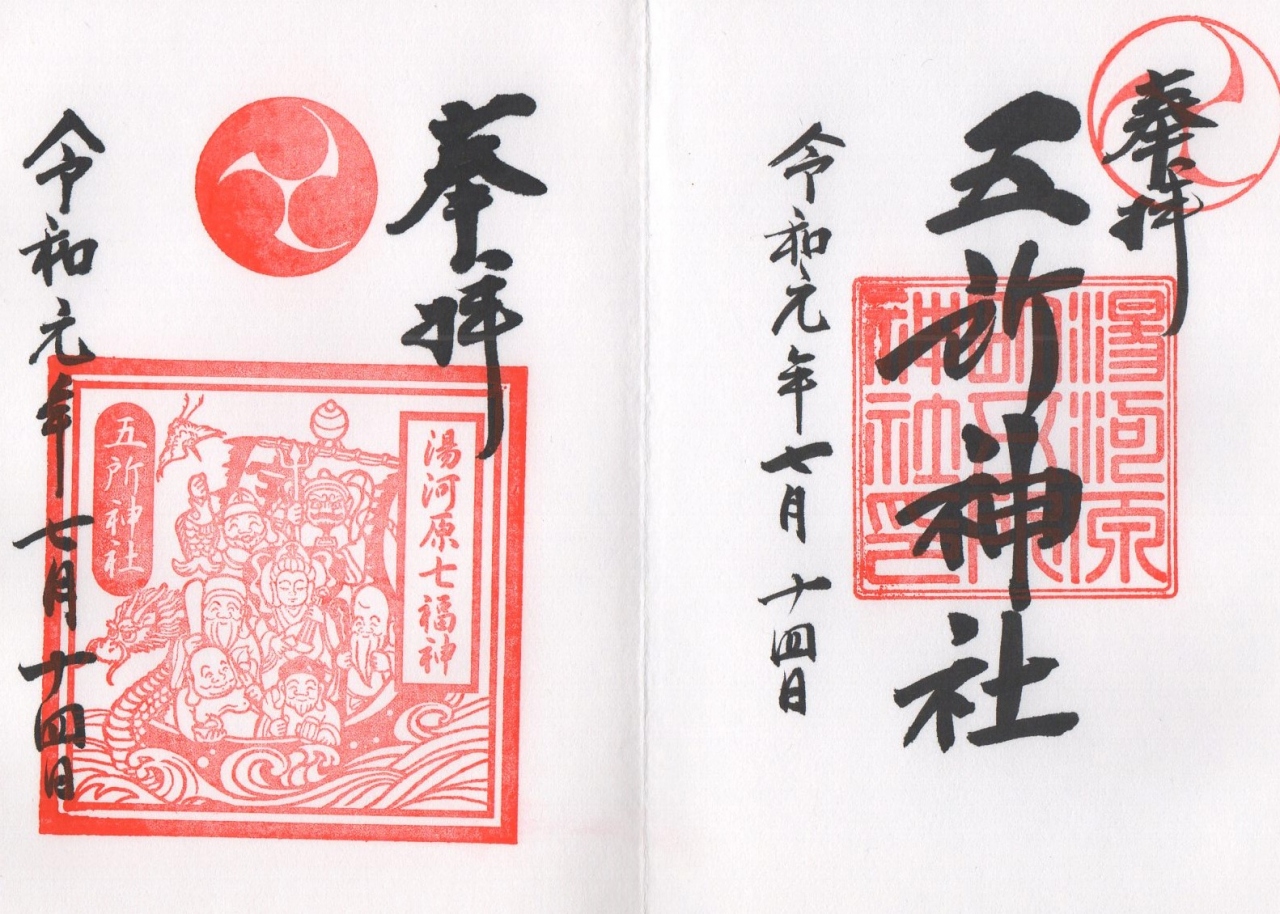 奉拝
五所神社
湯河原
神社印
令和元年七月十四日
奉拝
湯河原七福神
五所神社
令和元年七月十四日